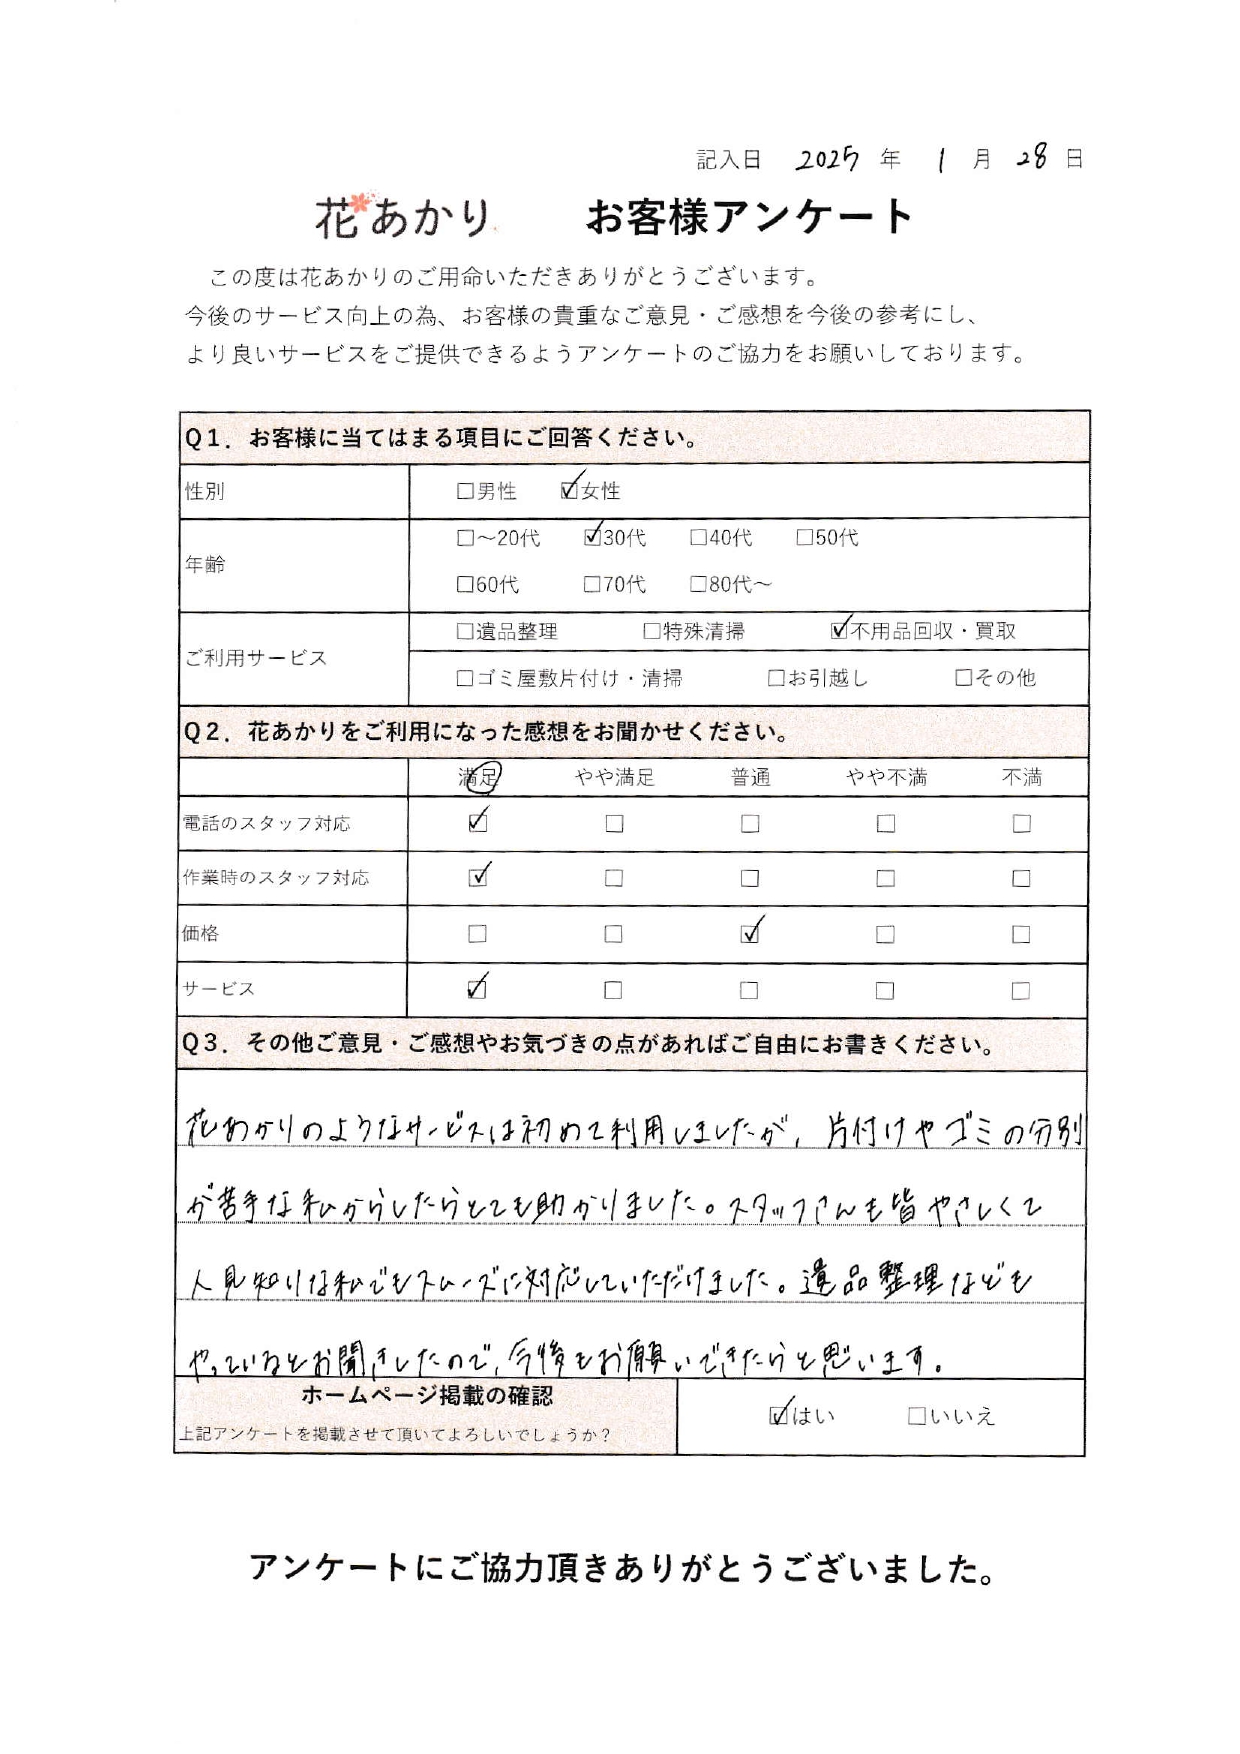 記入日 2025 年 1 月 28 日
花あかり お客様アンケート
この度は花あかりのご用命いただきありがとうございます。
今後のサービス向上の為、お客様の貴重なご意見・ご感想を今後の参考にし、
より良いサービスをご提供できるようアンケートのご協力をお願いしております。
Q1．お客様に当てはまる項目にご回答ください。
性別 □男性 ☑女性
年齢 □～20代 ☑30代 □40代 □50代
□60代 □70代 □80代～
ご利用サービス □遺品整理 □特殊清掃 ☑不用品回収・買取
□ゴミ屋敷片付け・清掃 □お引越し □その他
Q2．花あかりをご利用になった感想をお聞かせください。
満足 やや満足 普通 やや不満 不満
電話のスタッフ対応 ☑ □ □ □ □
作業時のスタッフ対応 ☑ □ □ □ □
価格 □ □ ☑ □ □
サービス ☑ □ □ □ □
Q3．その他ご意見・ご感想やお気づきの点があればご自由にお書きください。
花あかりのようなサービスは初めて利用しましたが、片付けやゴミの分別
が苦手な私からしたらとても助かりました。スタッフさんも皆やさしくて
人見知りな私でもスムーズに対応していただけました。遺品整理なども
やっているとお聞きしたので、今後もお願いできたらと思います。
ホームページ掲載の確認
上記アンケートを掲載させて頂いてよろしいでしょうか？ ☑はい □いいえ
アンケートにご協力頂きありがとうございました。